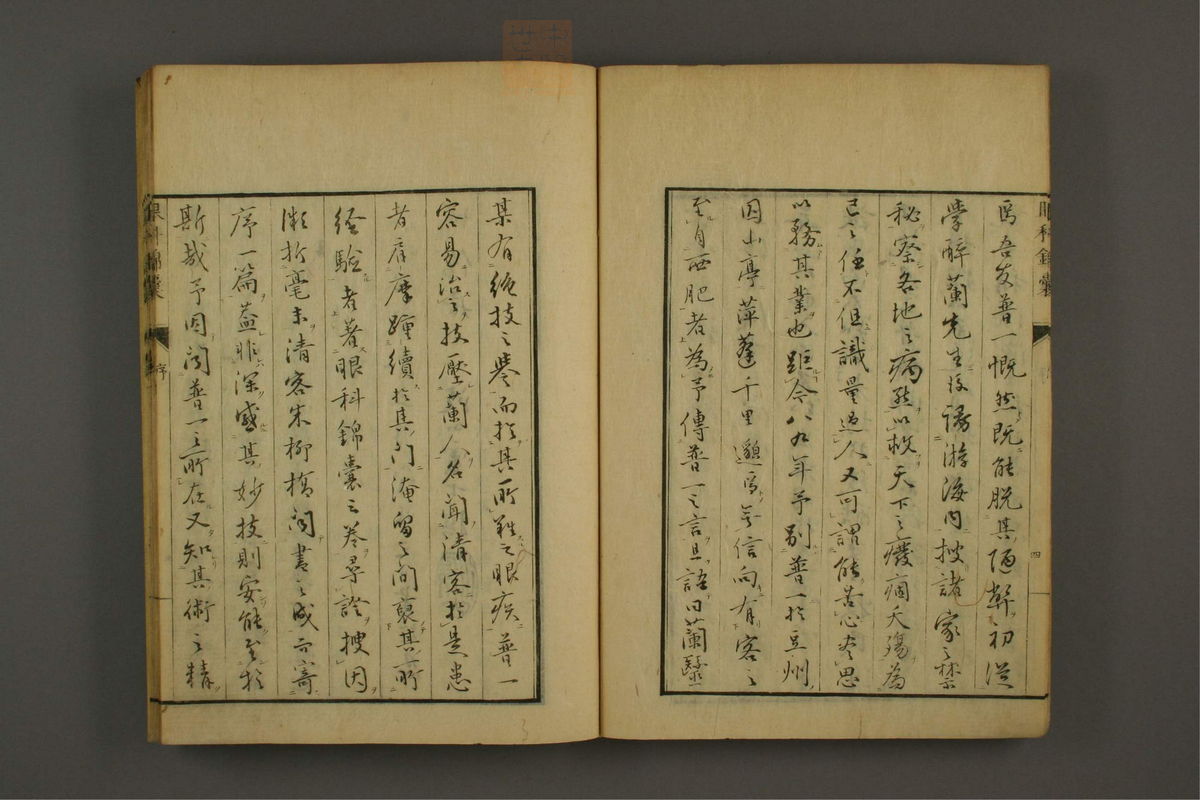 眼科錦囊
四
焉吾友普一慨然既能脱其陋弊初從
學醉蘭先生後漫游海内搜諸家之禁
秘察各地之病態以救天下之癈痼夭殤為
己之任不但識量過人又可謂能苦心盡思
以務其業也距今八九年予別普一於豆州
因山亭萍蓬千里邈焉無信向有客之
至自西肥者為予傳普一之言且語曰蘭醫
某有絶技之譽而於其所難之眼疾普一
容易治之技壓蘭人名聞清客於是患
者肩摩踵續於其門淹留之間裒其所
經驗者著眼科錦囊之卷尋證搜因
漸析毫末清客朱柳橋閲書之成而寄
序一篇蓋非深感其妙技則安能至於
斯哉予因聞普一之所在又知其術之精
眼科錦囊
序